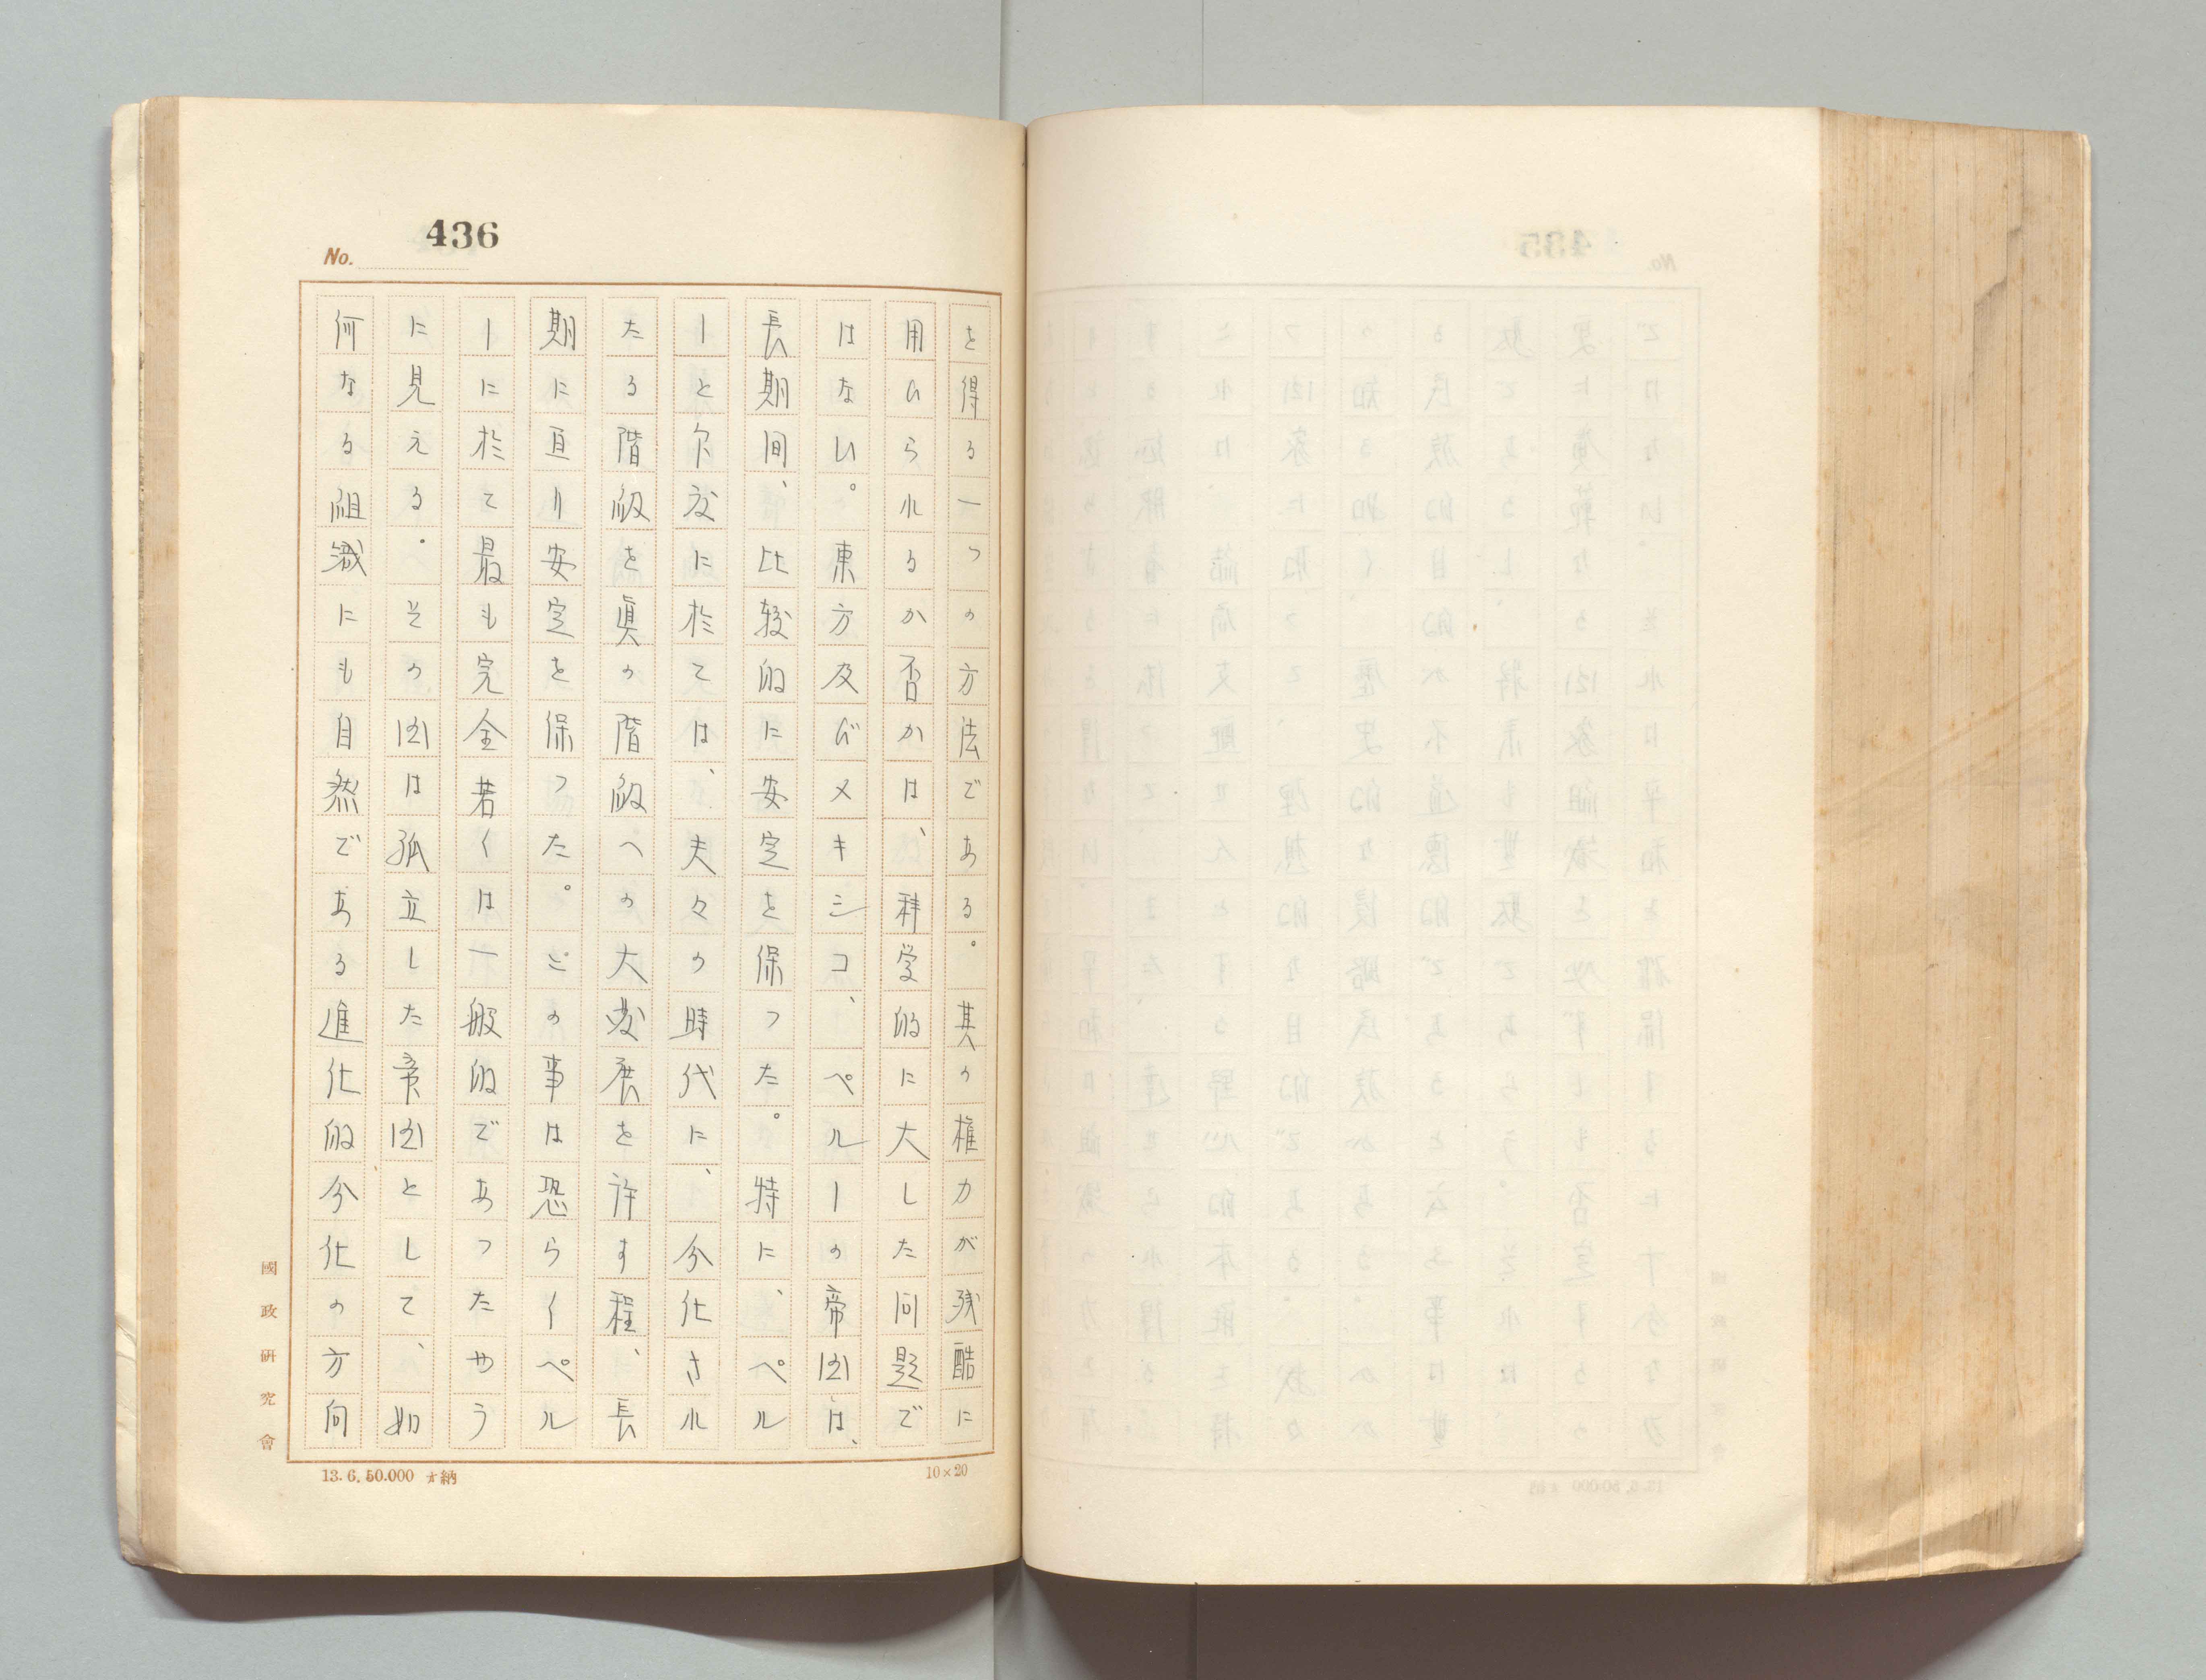 No. 436
を得る一つの方法である。其の権力が残酷に
用ひられるか否かは、科学的に大した問題で
はない。東方及びメキシコ、ペルーの帝国は、
長期間、比較的に安定を保つた。特に、ペル
ーとに於ては、夫々の時代に、分化され
たる階級を眞の階級への大発展を許す程、長
期に亘り安定を保つた。この事は恐らくペル
ーに於て最も完全若くは一般的であつたやう
に見える。その国は孤立した帝国として、如
何なる組織にも自然である進化的分化の方向
國政研究會
13.6.50.000 納
10×20